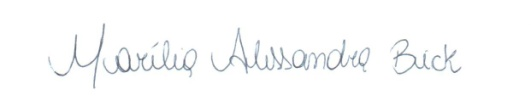 Marília Alissandra Bick